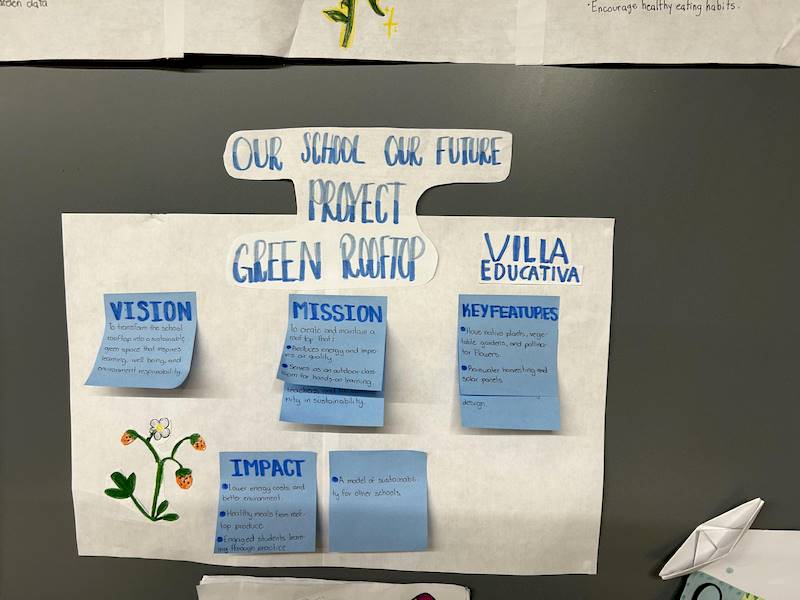 arden data
·Encourage healthy eating habits.
OUR SCHOOL OUR FUTURE
PROYECT
GREEN ROOFTOP
VILLA
EDUCATIVA
VISION
To transform the school
rooftop into a sustainable
green space that inspires
learning, well being, and
environment responsability.
MISSION
To create and maintain a
rooftop that:
•Reduces energy and impro
ves air quality.
•Serves as an outdoor class-
room for hands-on learning.
teachers, and
nity in sustainability.
KEY FEATURES
•Have native plants, vege-
table gardens, and pollina-
tor flowers.
•Rainwater harvesting and
solar panels.
design.
IMPACT
•Lower energy costs and
better environment.
•Healthy meals from roof-
top produce
•Engaged students lear-
ning through practice
•A model of sustainabili-
ty for other schools.